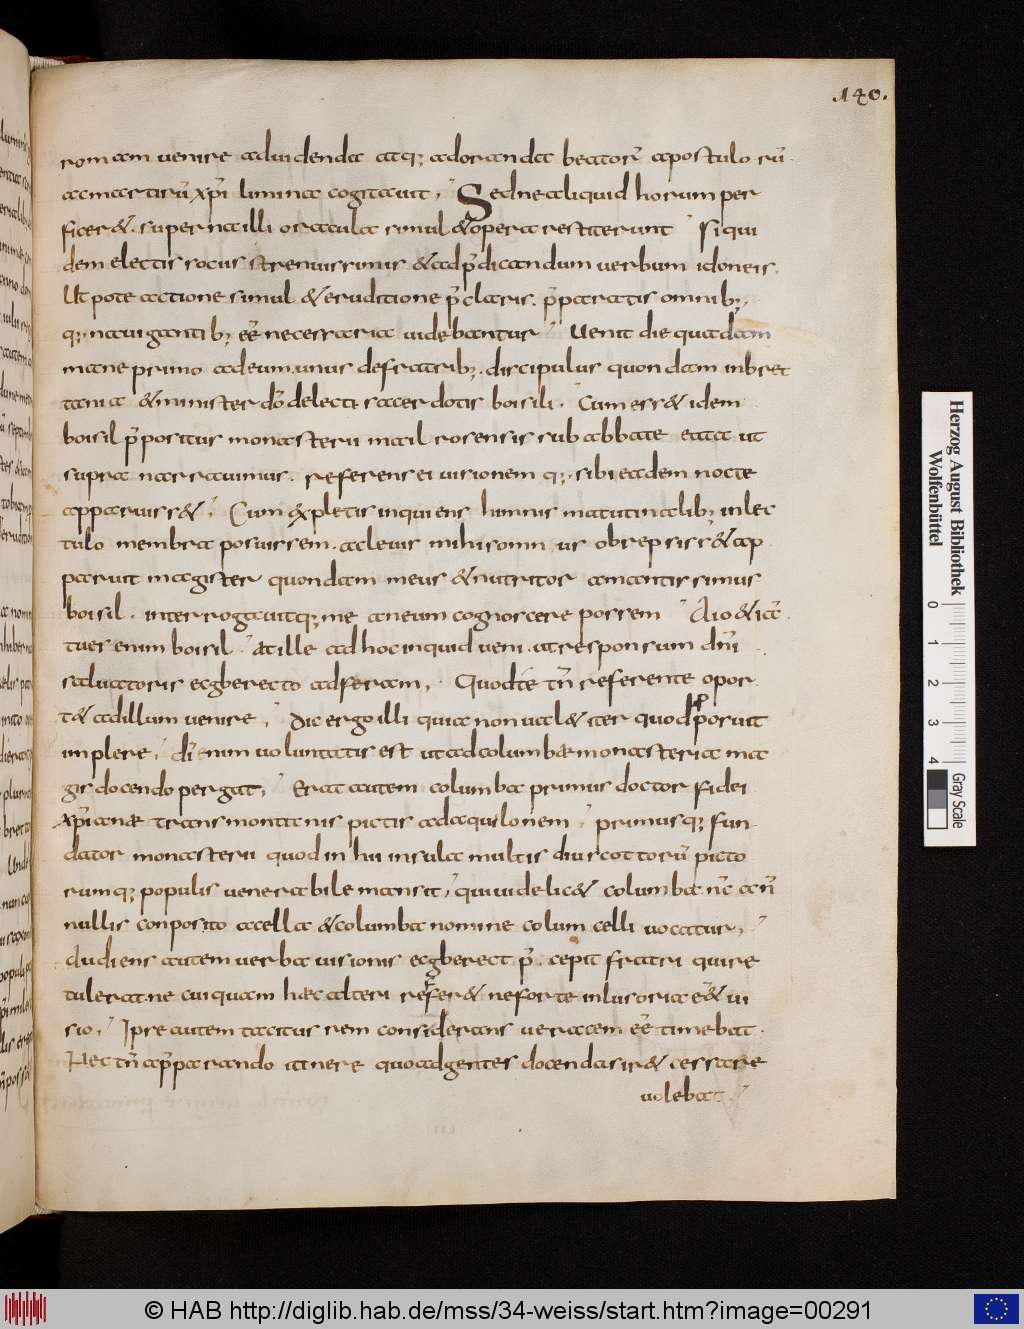 140.
romam uenire aduidenda atq; adoranda beator̄ apostolorū.
acmartirū xp̄i limina cogitauit; Sedne aliquid horum per
ficer&. superna illi oracula simul &opera restiterunt; Siqui
dem electis sociis strenuissimis &adp̄dicandum uerbum idoneis.
Ut pote actione simul &eruditione p̄claris. p̄paratis omnib;
q; nauigantib; eē necessaria uidebantur; Uenit die quadam
mane primo adeum. unus defratrib;. discipulus quondam inbret
tania &minister dō delecti sacerdotis boisili; Cum ess& idem
boisil p̄positus monasterii mail rosensis sub abbate eata ut
supra narrauimus. referens ei uisionem q;. sibi eadem nocte
apparuiss&; Cum expletis inquiens himnis matutinalib; inlec
tulo membra posuissem. acleuis mihi somn us obrepsiss& ap
paruit magister quondam meus &nutritor amantissimus
boisil. interrogauitq; me aneum cognoscere possem; Aio &iā.
tues enim boisil; at ille adhoc inquid ueni. utresponsum dn̄i
saluatoris ecgberecto adferam; Quodte tn̄ referente opor
t& adillum uenire; Dic ergo illi quia non ual& iter quod p̄posuit
implere; dī enim uoluntatis est utad columbæ monasteria ma
gis docendo pergat; Erat autem columba primus doctor fidei
xp̄ianæ transmontanis pictis adaquilonem; primusq; fun
dator monasterii quod in hii insula multis diu scottorū picto
rumq; populis uenerabile mansit; qui uidelic& columba nc̄ ann̄
nullis conposito acella &columba nomine columcelli uocatur;
Audiens autem uerba uisionis ecgberect p̄. cepit fratri quire
tulerat. ne cuiquam hæc alteri refer& ne forte inlusoria e&̄ ui
sio; Ipse autem tacitus rem considerans ueracem eē timebat.
Nec tn̄ ap̄parando itinere quo adgentes docendas ir& cessare
uolebat;
Herzog August Bibliothek
Wolfenbüttel
0 1 2 3 4
Gray Scale
© HAB http://diglib.hab.de/mss/34-weiss/start.htm?image=00291